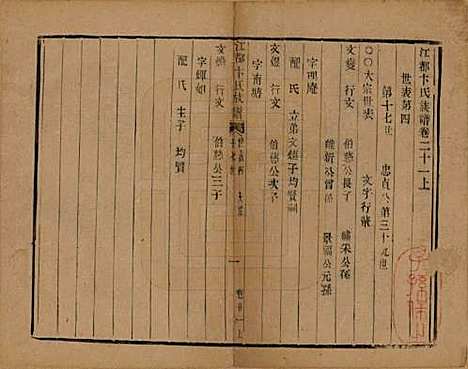 江都卞氏族譜卷二十一上
世表第四
第十七世　忠貞公第三十九世
○○大宗世表　文字行輩
文燮　行文　伯慈公長子　公孫　景福公元孫
字理庵
配氏　立弟文煥子均賢嗣
文煜　行文　伯慈公次子
字甫塘
文煥　行文　伯慈公三子
字輝如
配氏　生子　均賢
江都卞氏族譜
一
卷廿一上